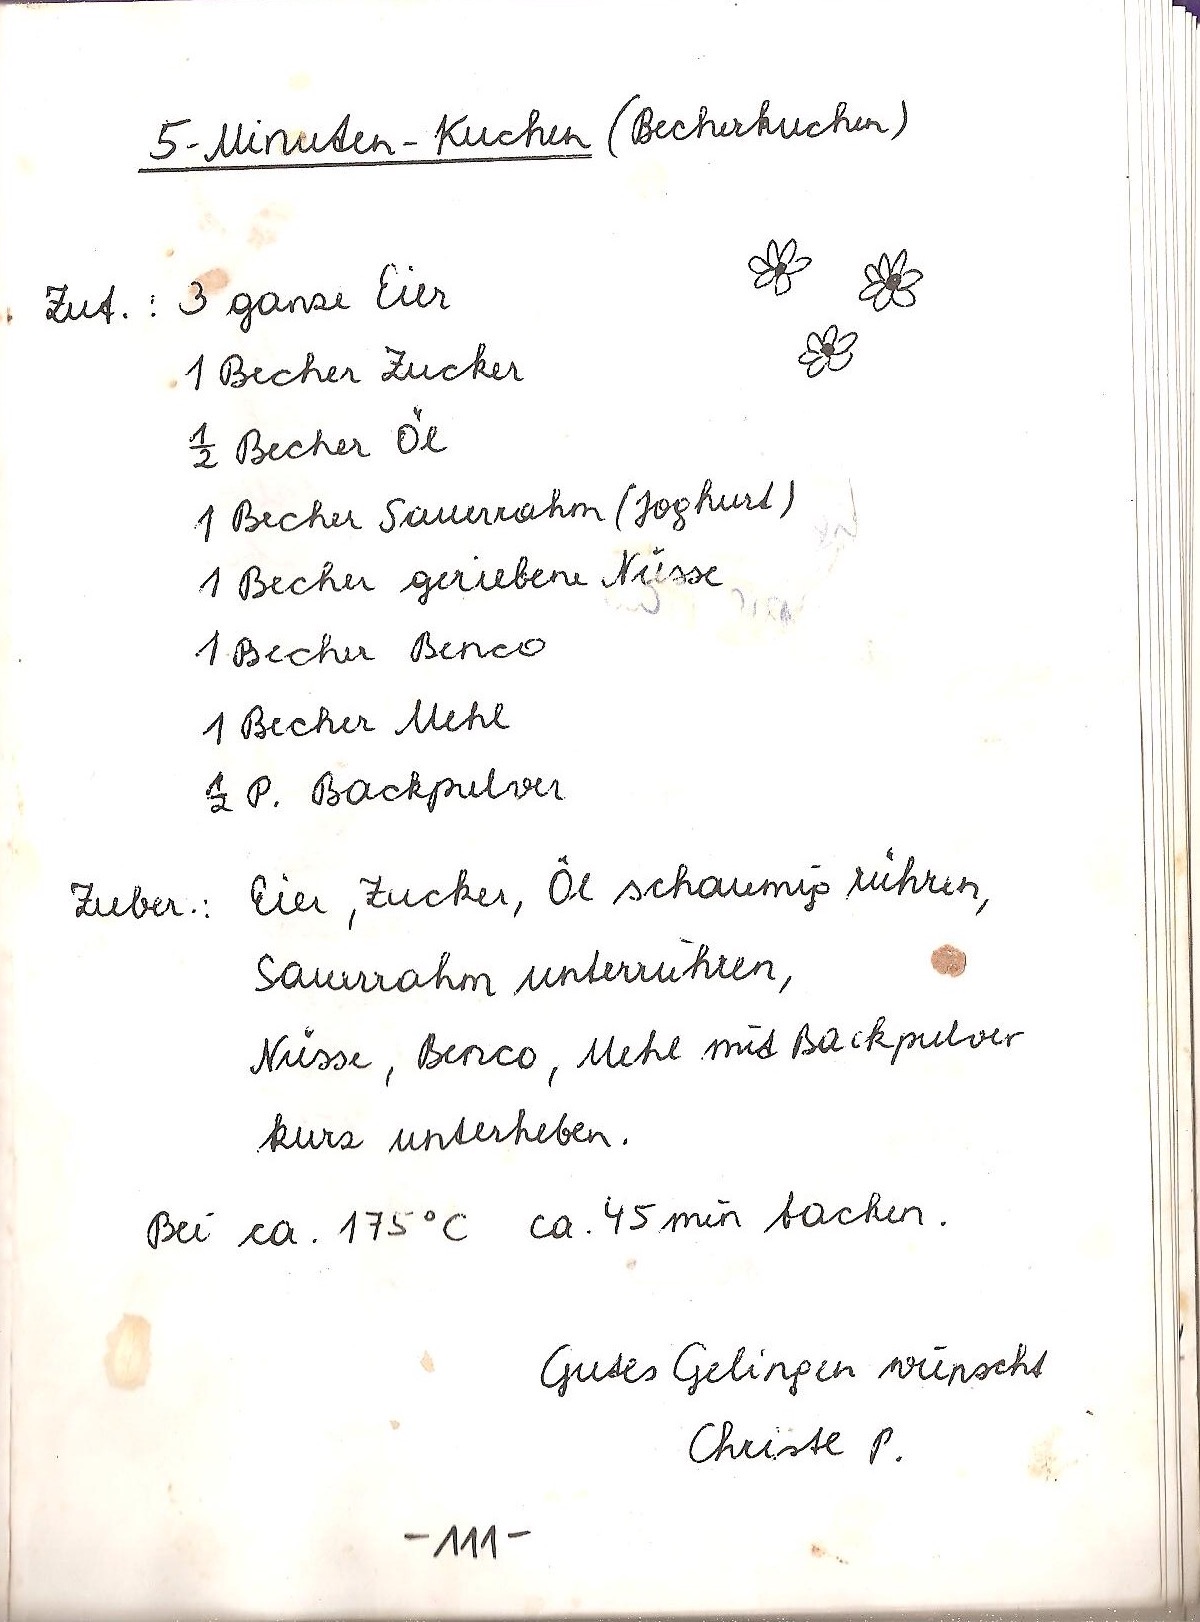 5-Minuten-Kuchen (Becherkuchen)
Zut.: 3 ganze Eier
1 Becher Zucker
1/2 Becher Öl
1 Becher Sauerrahm (Joghurt)
1 Becher geriebene Nüsse
1 Becher Benco
1 Becher Mehl
1/2 P. Backpulver
Zuber.: Eier, Zucker, Öl schaumig rühren,
Sauerrahm unterrühren,
Nüsse, Benco, Mehl mit Backpulver
kurz unterheben.
Bei ca. 175°C ca. 45 min backen.
Gutes Gelingen wünscht
Christl P.
-111-